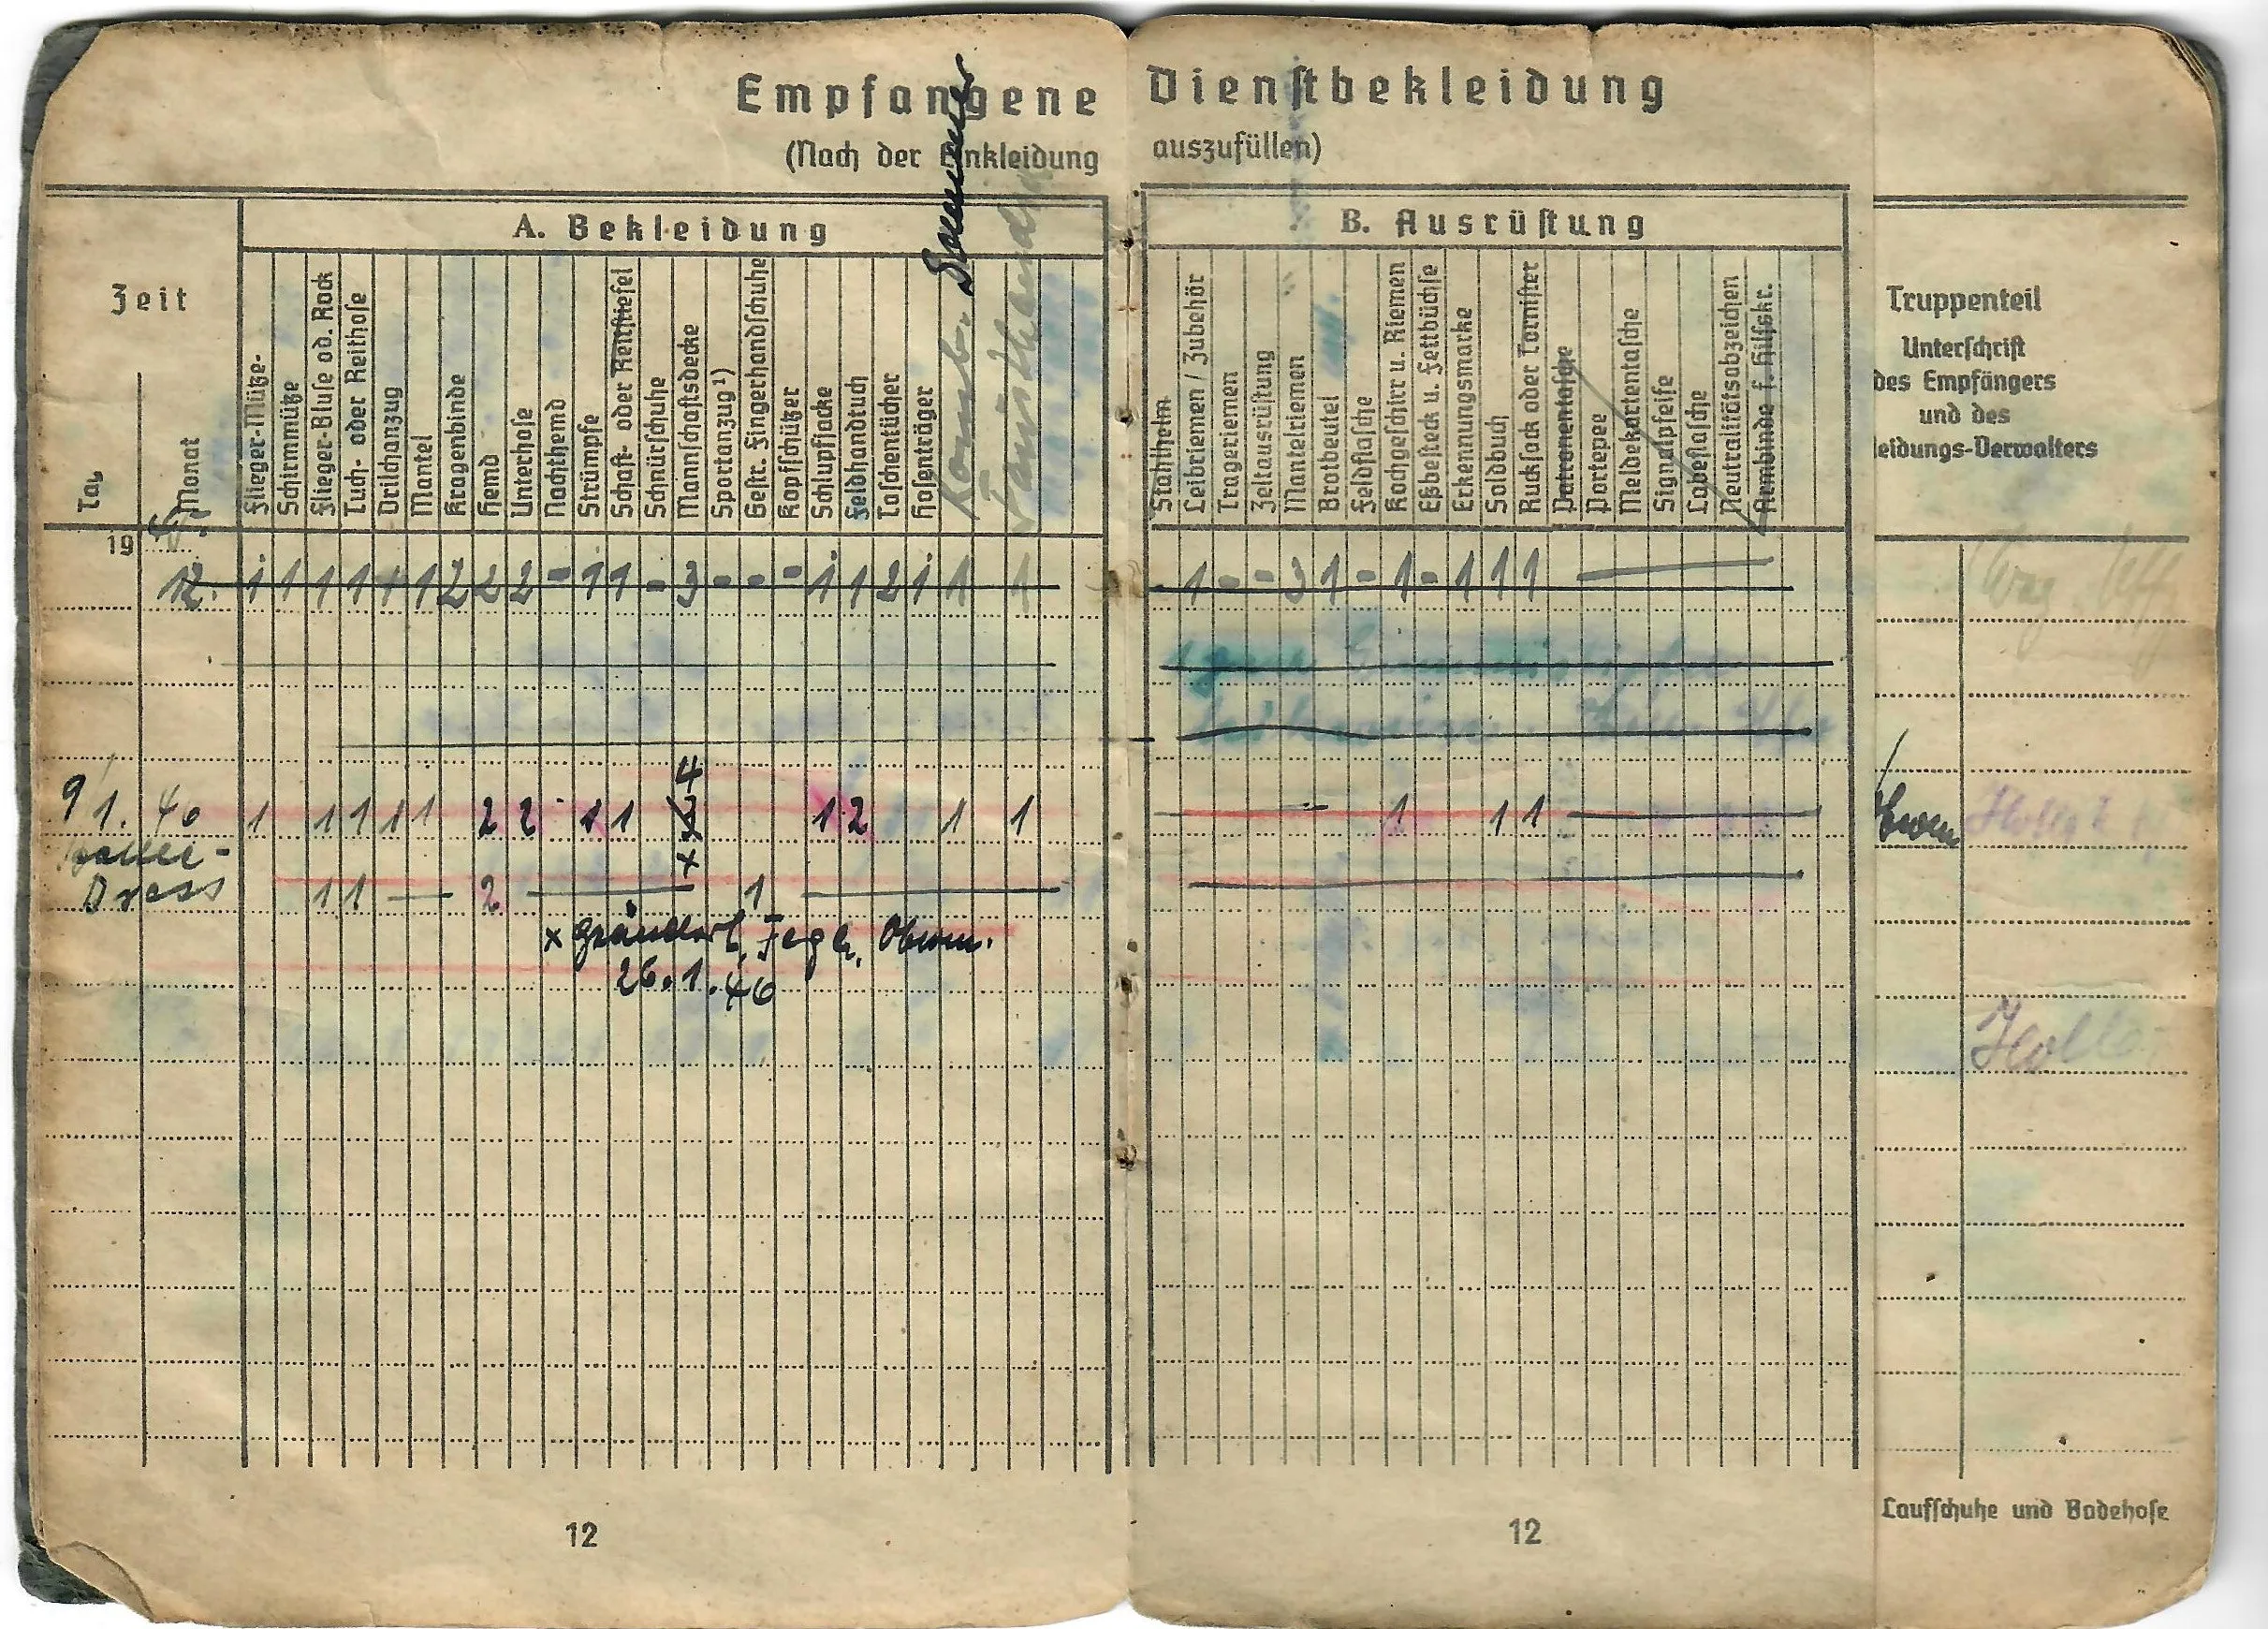 Empfangene Dienstbekleidung
(Nach der Einkleidung auszufüllen)
A. Bekleidung
B. Ausrüstung
Zeit
Tag
Monat
Flieger-Mütze
Schirmmütze
Flieger-Bluse od. Rock
Tuch- oder Reithose
Drilchanzug
Mantel
Kragenbinde
Hemd
Unterhose
Nachthemd
Strümpfe
Schaft- oder Reitstiefel
Schnürschuhe
Mannschaftsdecke
Sportanzug ¹)
Gestr. Fingerhandschuhe
Kopfschützer
Schlupfjacke
Feldhandtuch
Taschentücher
Hosenträger
Komb. Sommer
Fausthandsch
Stahlhelm
Leibriemen / Zubehör
Trageriemen
Zeltausrüstung
Mantelriemen
Brotbeutel
Feldflasche
Kochgeschirr u. Riemen
Eßbesteck u. Fettbüchse
Erkennungsmarke
Soldbuch
Rucksack oder Tornister
Patronentasche
Portepee
Meldekartentasche
Signalpfeife
Labeflasche
Neutralitätsabzeichen
Armbinde f. Hilfskr.
Truppenteil
Unterschrift
des Empfängers
und des
leidungs-Verwalters
19
12. 1 1 1 1 1 1 2 2 2 - 1 1 - 3 - - - 1 1 2 1 1 1 1 - - 3 1 - 1 - 1 1 1
4
9/1. 46 1 1 1 1 1 2 2 1 1 1 2 1 1 1 1 1
Dress 1 1 — 2 — 1 —
x geändert, Jegh, Obwm.
26.1.46
Holl
12
12
Laufschuhe und Badehose